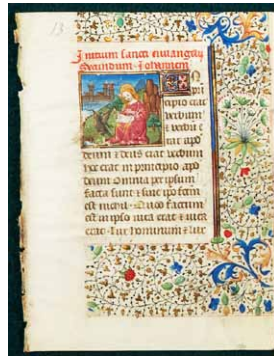 13
Initium sancti euuangelij
secundum Johannem
In pri
cipio erat
verbum
et verbũ e
rat apd
deum et deus erat verbum
hoc erat in principio apd
deum Omnia per ipsum
facta sunt et sine ipo factũ
est nichil Quod factum
est in ipso vita erat et vita
erat lux hominum et lux